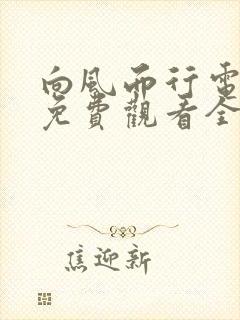 向风而行電
免費觀看全
焦迎新